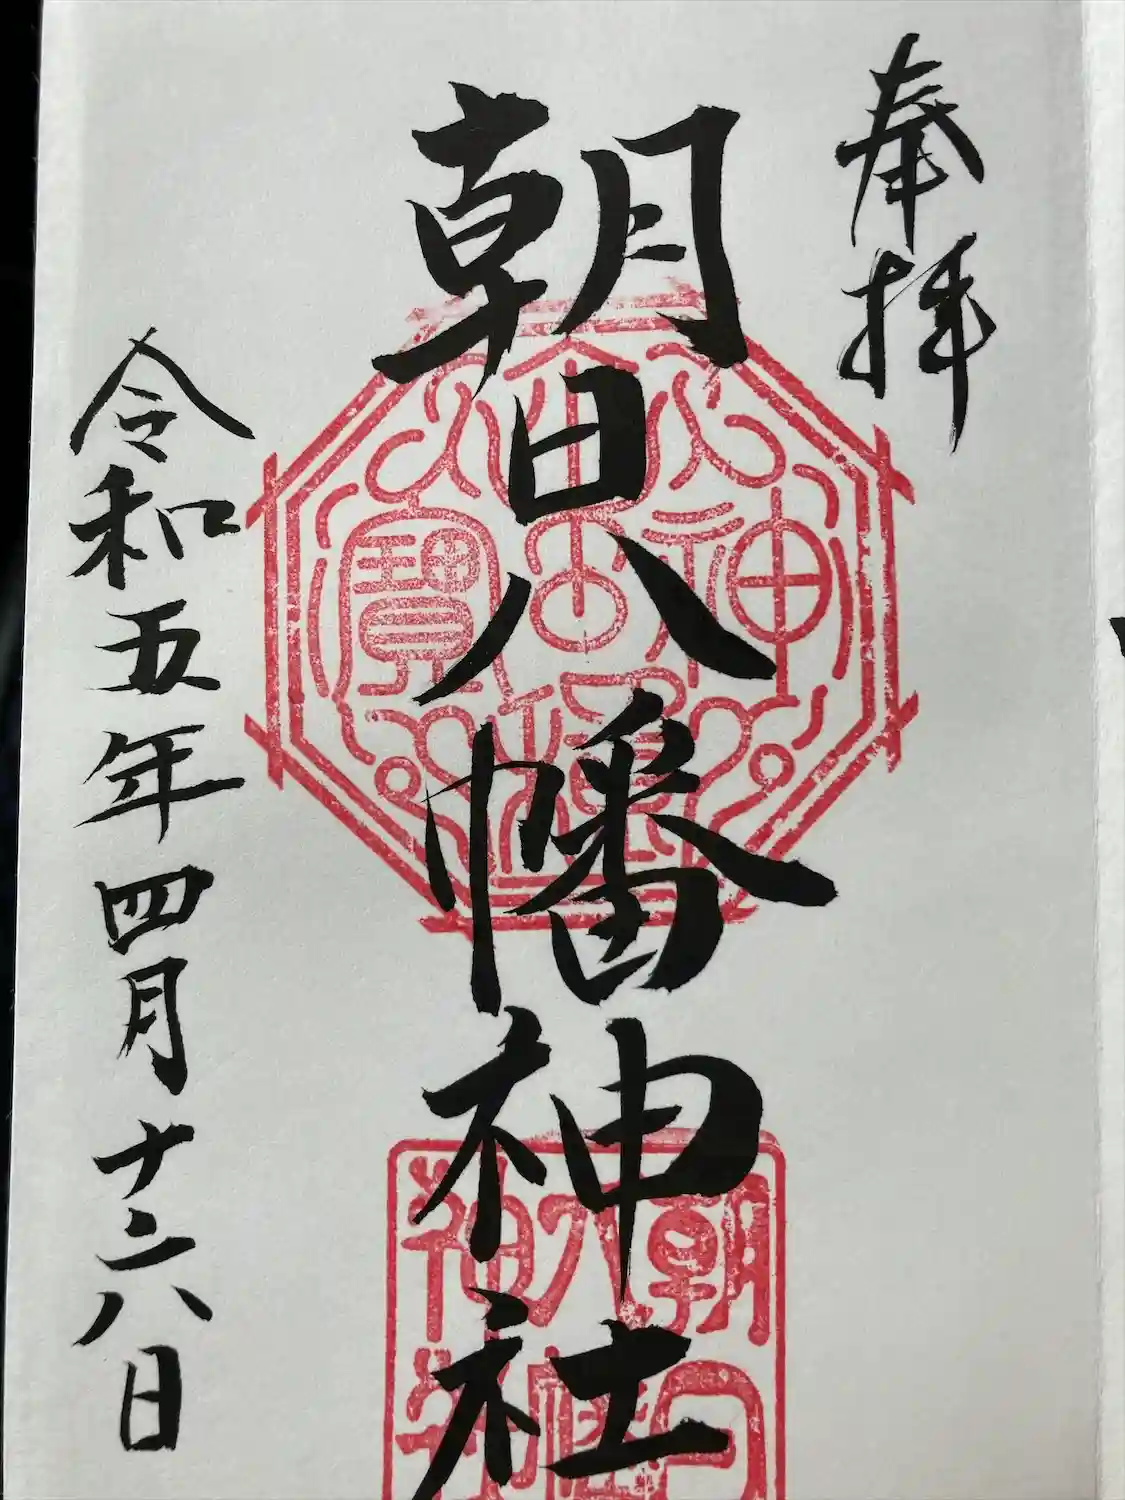 奉拝
朝日八幡神社
令和五年四月十六日
朝日
八幡
神社